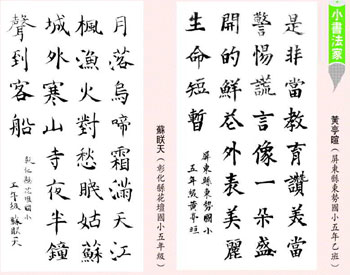 小書法家
黃亭暄（屏東縣東勢國小五年乙班）
是非當教育讚美當
警惕謊言像一朵盛
開的鮮花外表美麗
生命短暫
屏東縣東勢國小
五年級黃亭暄
蘇天（彰化縣花壇國小五年級）
月落烏啼霜滿天江
楓漁火對愁眠姑蘇
城外寒山寺夜半鐘
聲到客船
彰化縣花壇國小
五年級 蘇天